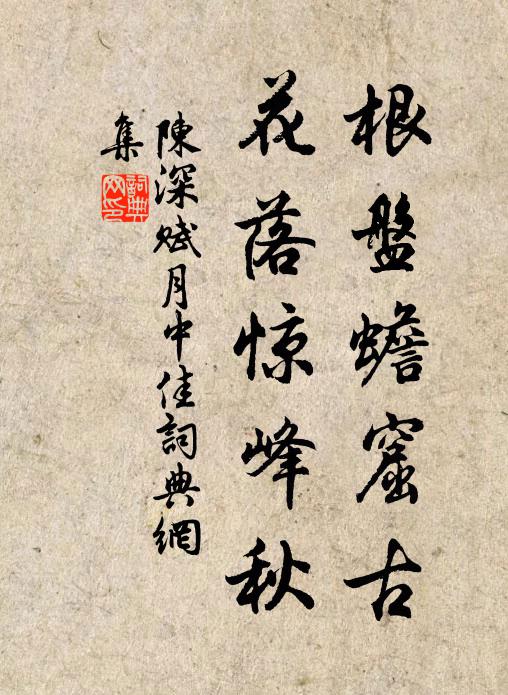 根盤蟾窟古
花落惊峰秋
陳深賦月中佳詞典網
集
詞典网印